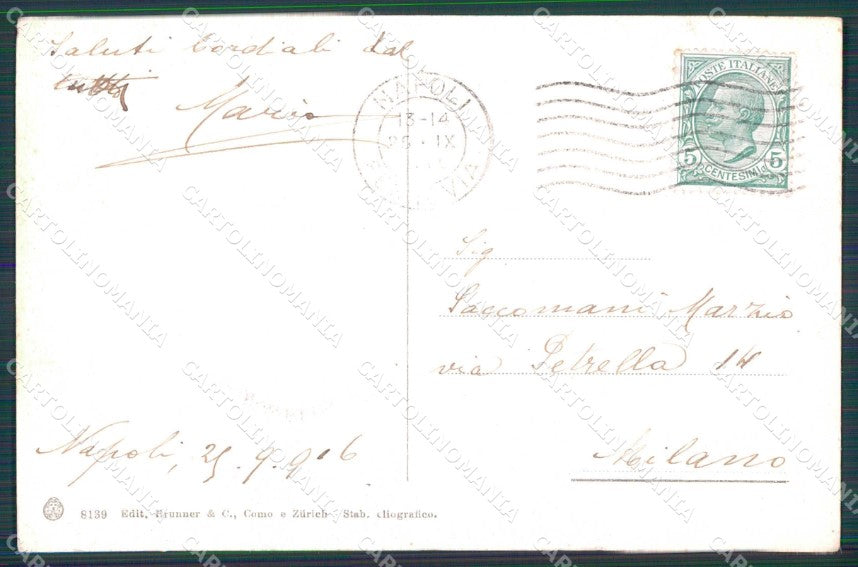 Saluti Cordiali dal
tutti
Mario
NAPOLI
13-14
26·IX
VIA
POSTE ITALIANE
5 5
CENTESIMI
Sig.
Saccomani Marzio
via Petrella 14
Milano
Napoli, 25.9.916
8139 Edit. Brunner & C., Como e Zürich Stab. eliografico.
CARTOLINOMANIA